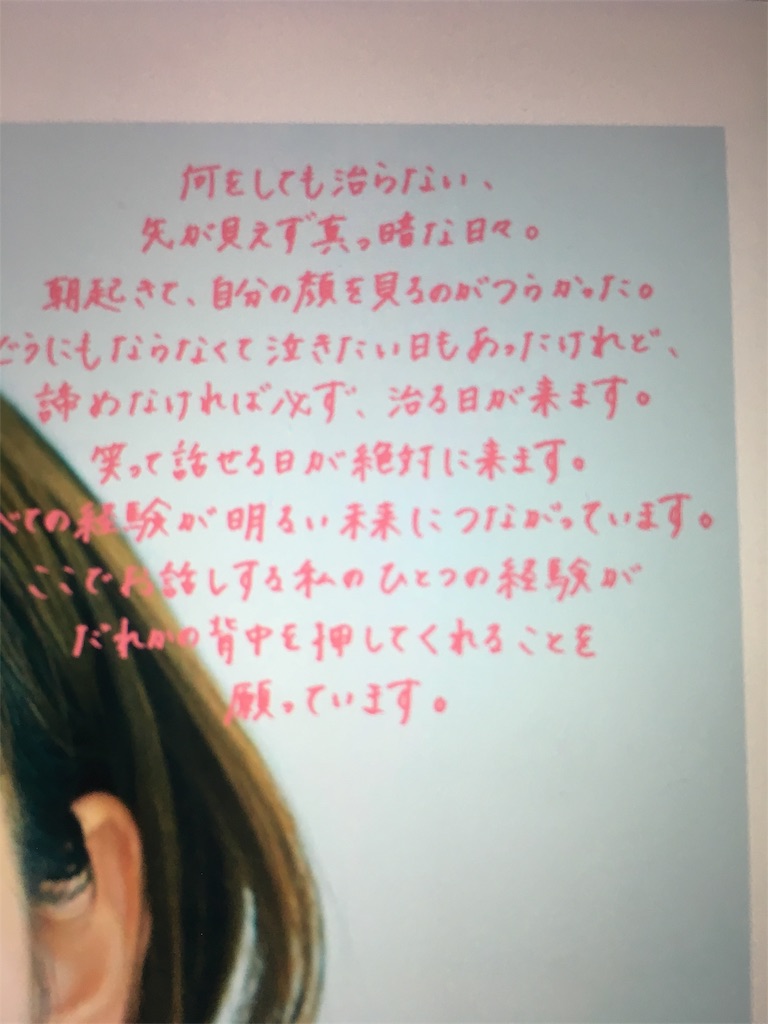 何をしても治らない、
先が見えず真っ暗な日々。
朝起きて、自分の顔を見るのがつらかった。
どうにもならなくて泣きたい日もあったけれど、
諦めなければ必ず、治る日が来ます。
笑って話せる日が絶対に来ます。
べての経験が明るい未来につながっています。
ここでお話しする私のひとつの経験が
だれかの背中を押してくれることを
願っています。